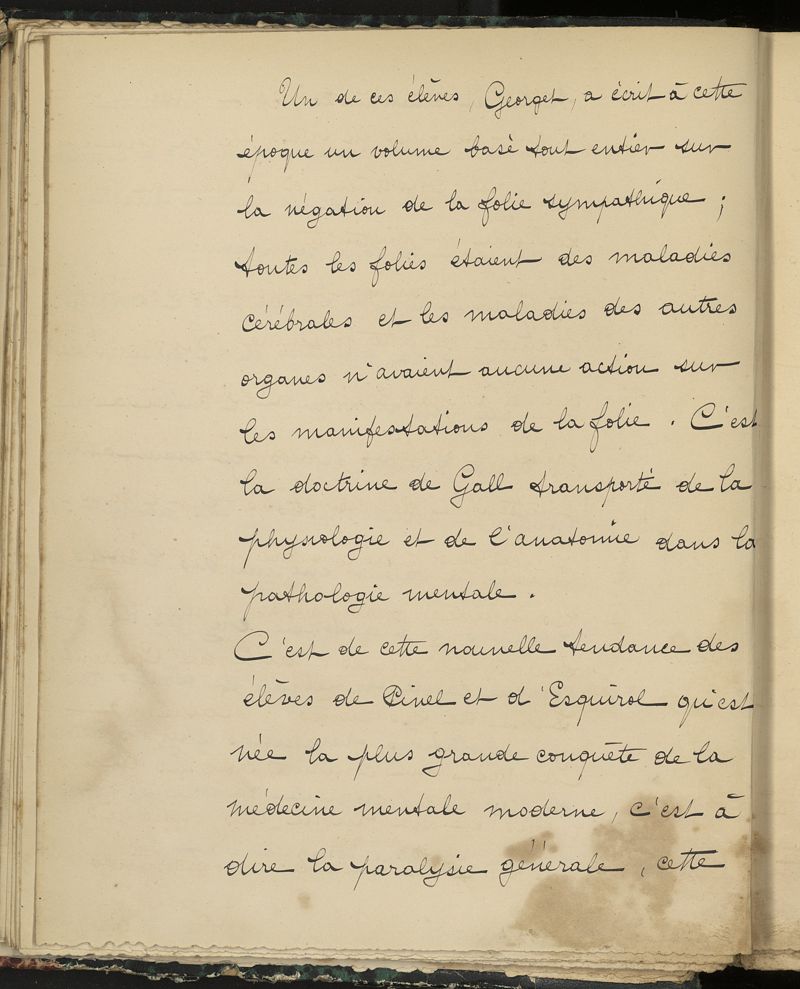 Un de ces élèves, Georget, a écrit à cette
époque un volume basé tout entier sur
la négation de la folie sympathique ;
toutes les folies étaient des maladies
cérébrales et les maladies des autres
organes n'avaient aucune action sur
les manifestations de la folie . C'est
la doctrine de Gall transporté de la
physiologie et de l'anatomie dans la
pathologie mentale .
C'est de cette nouvelle tendance des
élèves de Pinel et d'Esquirol qu'est
née la plus grande conquête de la
médecine mentale moderne, c'est à
dire la paralysie générale, cette